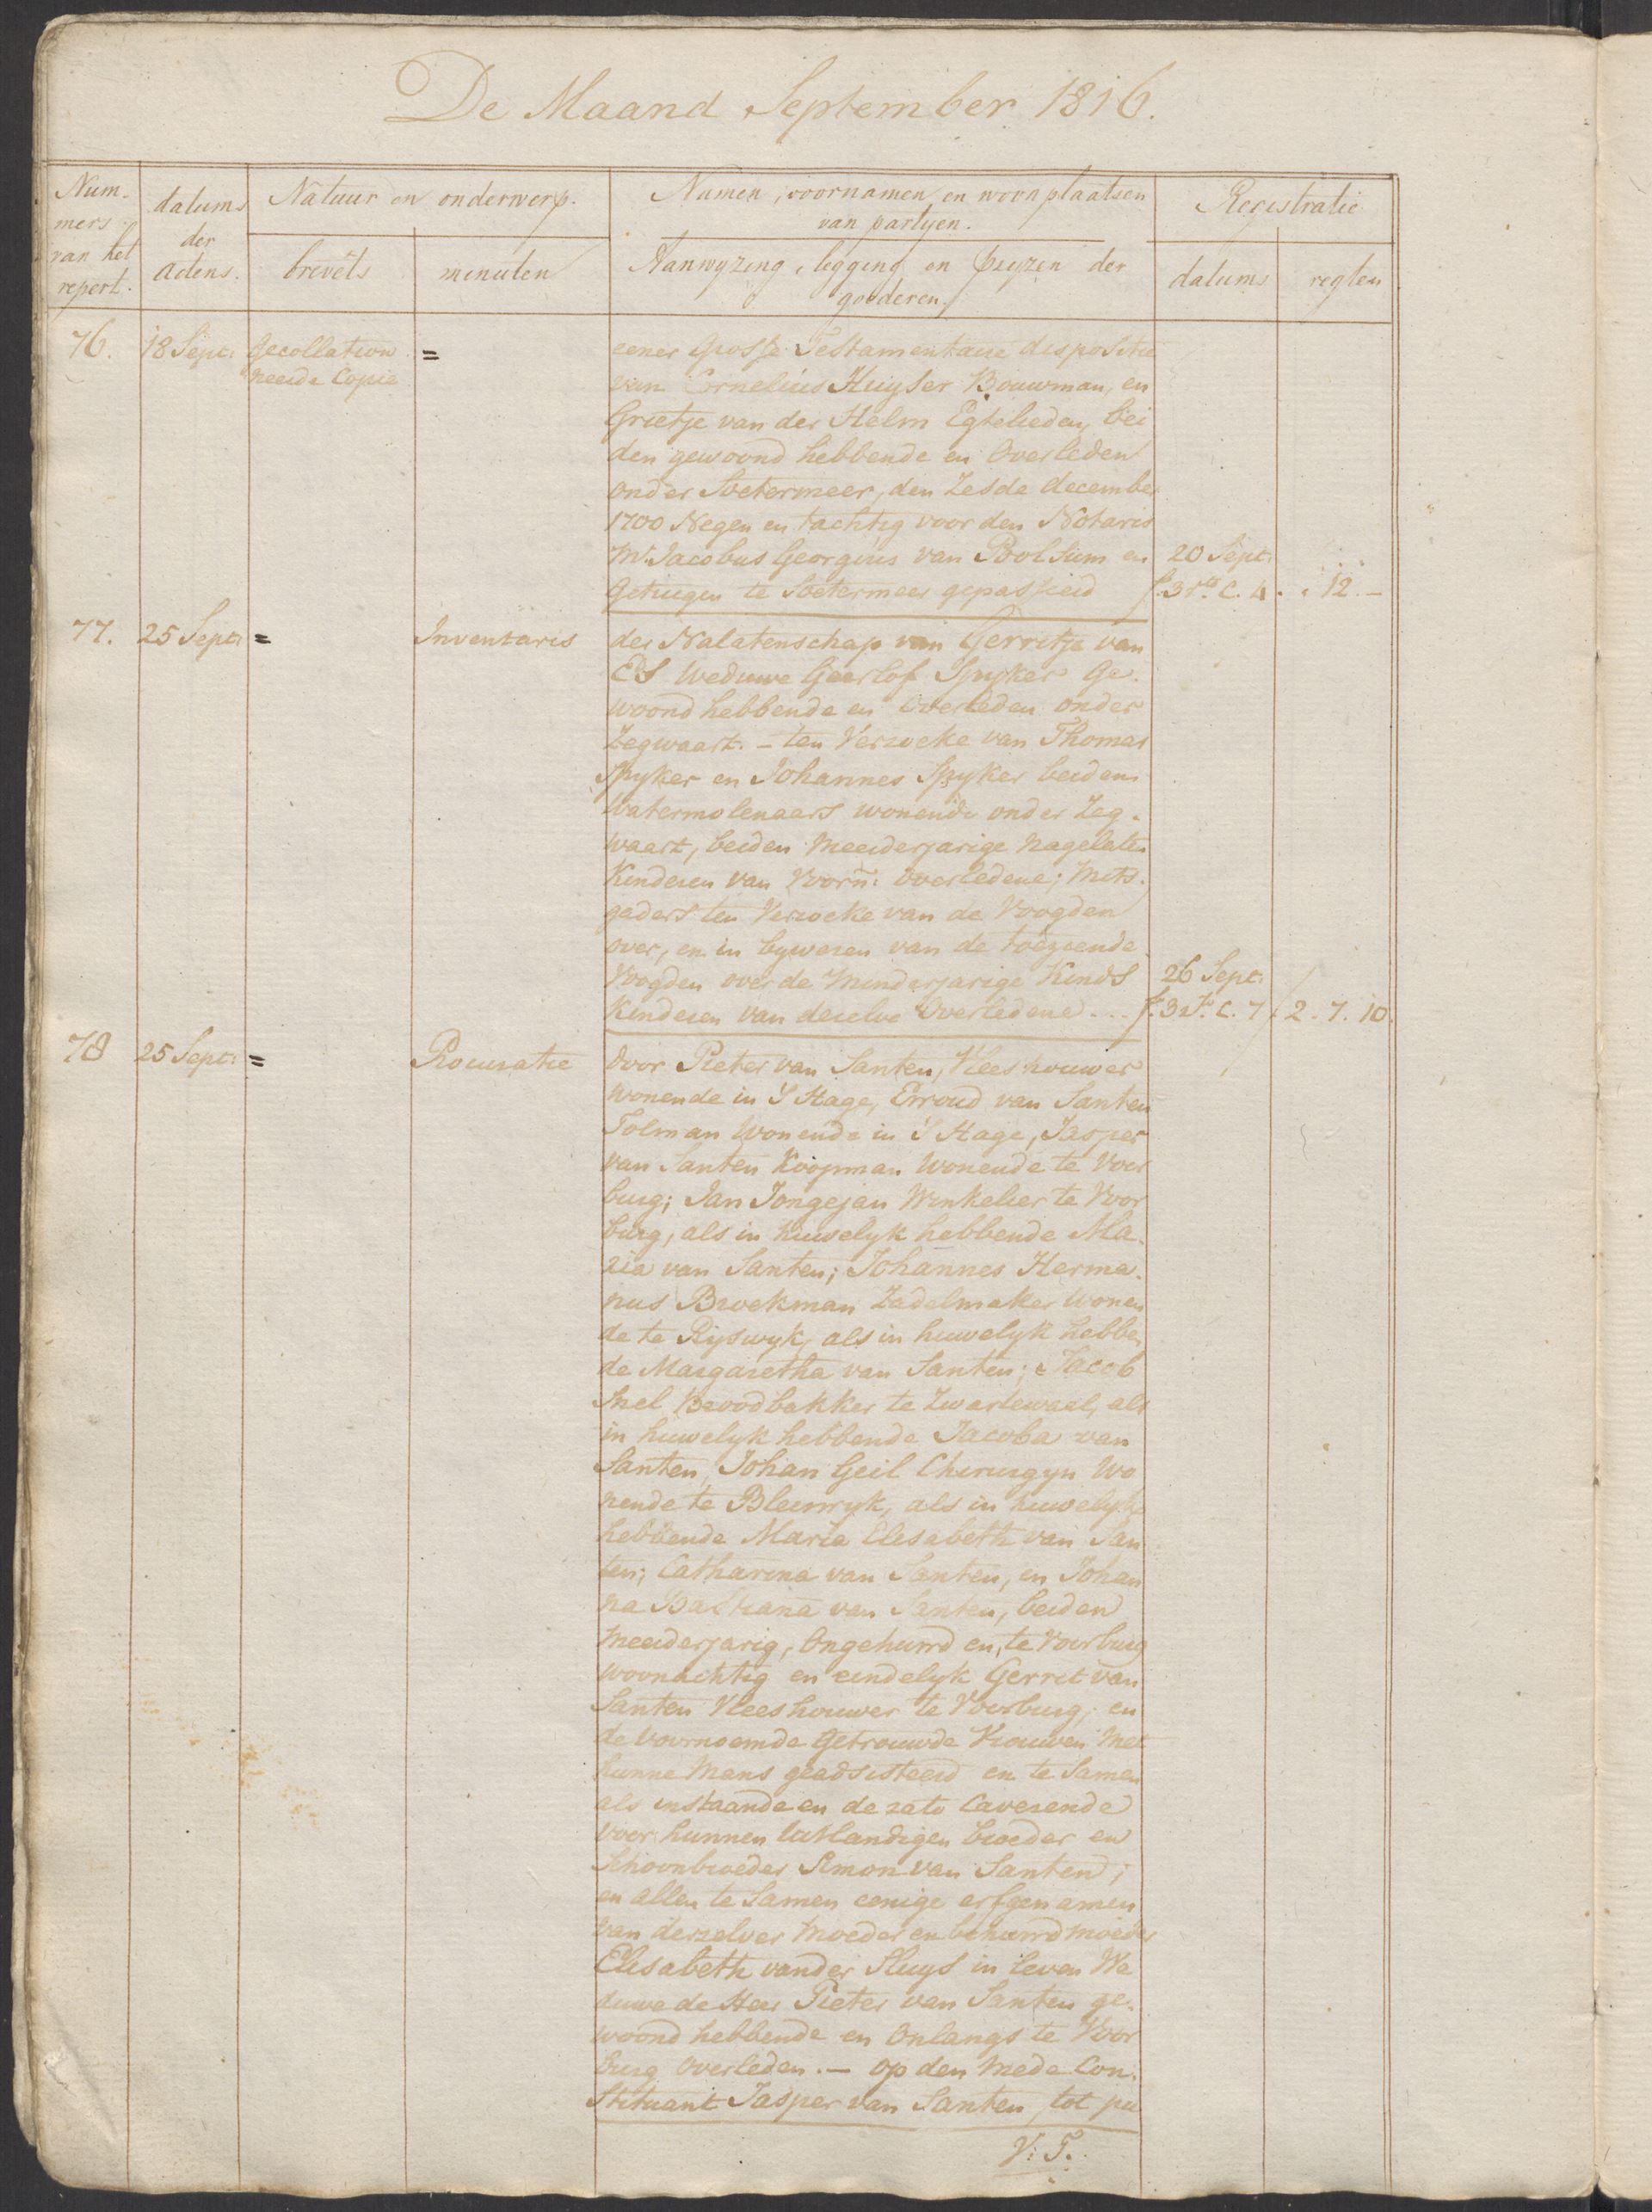 De Maand September 1816.
Num-
mers
van het
repert.
datums
der
Actens.
Natuur en onderwerp.
brevêts
minuten
Namen, voornamen en woonplaatsen
van partyen.
Aanwyzing, legging en pryzen der
goederen.
Registratie
datums
regten
76.
18 Sept:
Gecollation
neerde Copie
=
eener Grosse Testamentaire dispositie
van Cornelius Huyser Bouwman, en
Grietje van der Helm Egtelieden, bei
den gewoond hebbende en Overleden
onder Soetermeer, den Zesde december
1700 Negen en tachtig voor den Notaris
Mr. Jacobus Georgius van Bolsium en
Getuigen te Soetermeer gepasseerd
20 Sept:
f. 31 vo. C. 4.
. 12. -
77.
25 Sept:
=
Inventaris
der Nalatenschap van Gerritje van
Es Weduwe Geerlof Spyker Ge-
woond hebbende en overleden onder
Zegwaart. - ten Verzoeke van Thomas
Spyker en Johannes Spyker beiden
Watermolenaars wonende onder Zeg-
waart, beiden Meerderjarige Nagelaten
Kinderen van Voorn: Overledene; mits-
gaders ten Verzoeke van de Voogden
over, en in bywezen van de toeziende
Voogden over de Minderjarige Kinds
Kinderen van dezelve Overledene...
26 Sept:
f. 32 r. C. 7
2. 7. 10.
78
25 Sept:
=
Procuratie
door Pieter van Santen, Vleeshouwer
wonende in 'S Hage, Erroud van Santen
Tolman wonende in 'S Hage, Jasper
van Santen Koopman wonende te Voor
burg; Jan Jongejan Winkelier te Voor
burg, als in huwelyk hebbende Ma-
ria van Santen; Johannes Herma-
nus Broekman Zadelmaker wonen
de te Ryswyk, als in huwelyk hebben
de Margaretha van Santen; Jacob
Snel Broodbakker te Zwartewaal, als
in huwelyk hebbende Jacoba van
Santen, Johan Geil Chirurgyn Wo
nende te Bleiswyk, als in huwelyk
hebbende Maria Elisabeth van San
ten; Catharina van Santen, en Johan
na Bastiana van Santen, beiden
Meerderjarig, Ongehuwd en te Voorburg
woonachtig en eindelyk Gerrit van
Santen Vleeshouwer te Voorburg; en
de voornoemde Getrouwde Vrouwen met
hunne Mans geadsisteerd en te Samen
als instaande en de rato Caverende
voor hunnen uitlandigen broeder en
Schoonbroeder Simon van Santen;
en allen te Samen eenige erfgenamen
van derzelver Moeder en behuwdmoeder
Elisabeth vander Sluys in leven We
duwe de Heer Pieter van Santen ge-
woond hebbende en Onlangs te Voor
burg Overleden. - op den Mede Con-
Stituant Jasper van Santen, tot pu
V: T.